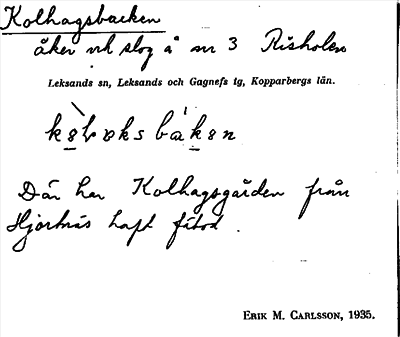 Kolhagsbacken
åker och slog å nr 3 Risholen
Leksands sn, Leksands och Gagnefs tg, Kopparbergs län.
Där har Kolhagsgården från
Hjortnäs haft fäbod.
ERIK M. CARLSSON, 1935.